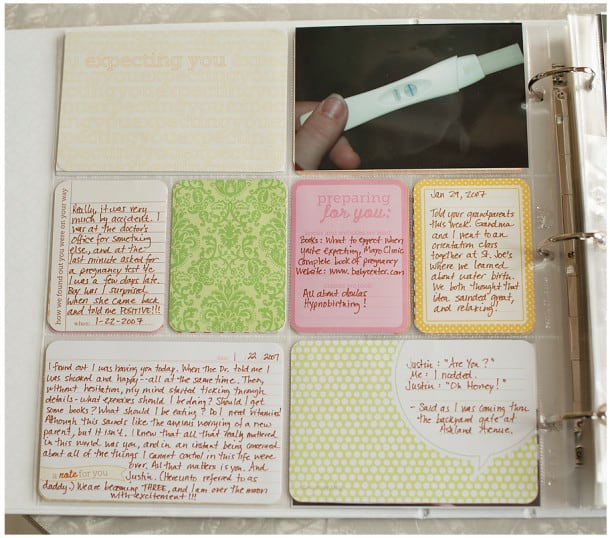 expecting you
how we found out you were on your way
Really, it was very
much by accident. I
was at the doctor's
office for something
else, and at the
last minute asked for
a pregnancy test b/c
I was a few days late.
Boy was I surprised
when she came back
and told me POSITIVE!!!
when: 1-22-2007
preparing
for you:
Books: What to expect when
you're expecting, Mayo Clinic
Complete book of pregnancy
Website: www.babycenter.com
All about doulas
Hypnobirthing!
Jan 29, 2007
Told your grandparents
this week. Grandma
and I went to an
orientation class
together at St. Joe's
where we learned
about water birth.
We both thought that
idea sounded great,
and relaxing.
1 22 2007
I found out I was having you today. When the Dr. told me I
was shocked and happy--all at the same time. Then,
without hesitation, my mind started ticking through
details - what exercises should I be doing? Should I get
some books? What should I be eating? Do I need vitamins?
Although this sounds like the anxious worrying of a new
parent, but it isn't. I knew that all that really mattered
in this world was you, and in an instant being concerned
about all of the things I cannot control in this life were
over. All that matters is you. And
a note for you
Justin. (Hereunto referred to as
daddy.) We are becoming THREE, and I am over the moon
with excitement!!!
Justin: "Are You?"
Me: I nodded.
Justin: "Oh Honey!"
- Said as I was coming thru
the backyard gate at
Ashland Avenue.